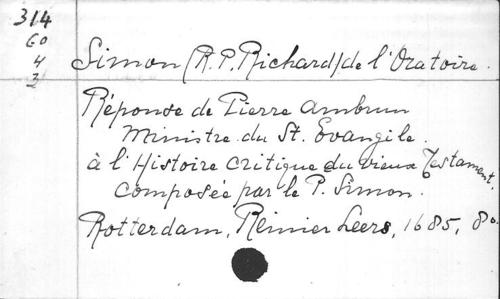 314
60
4
2
Simon (R.P. Richard) de l'Oratoire.
Réponse de Pierre Ambrun
Ministre du St. Evangile.
à l'Histoire critique du vieux Testament
composée par le P. Simon.
Rotterdam, Reinier Leers, 1685, 8o.